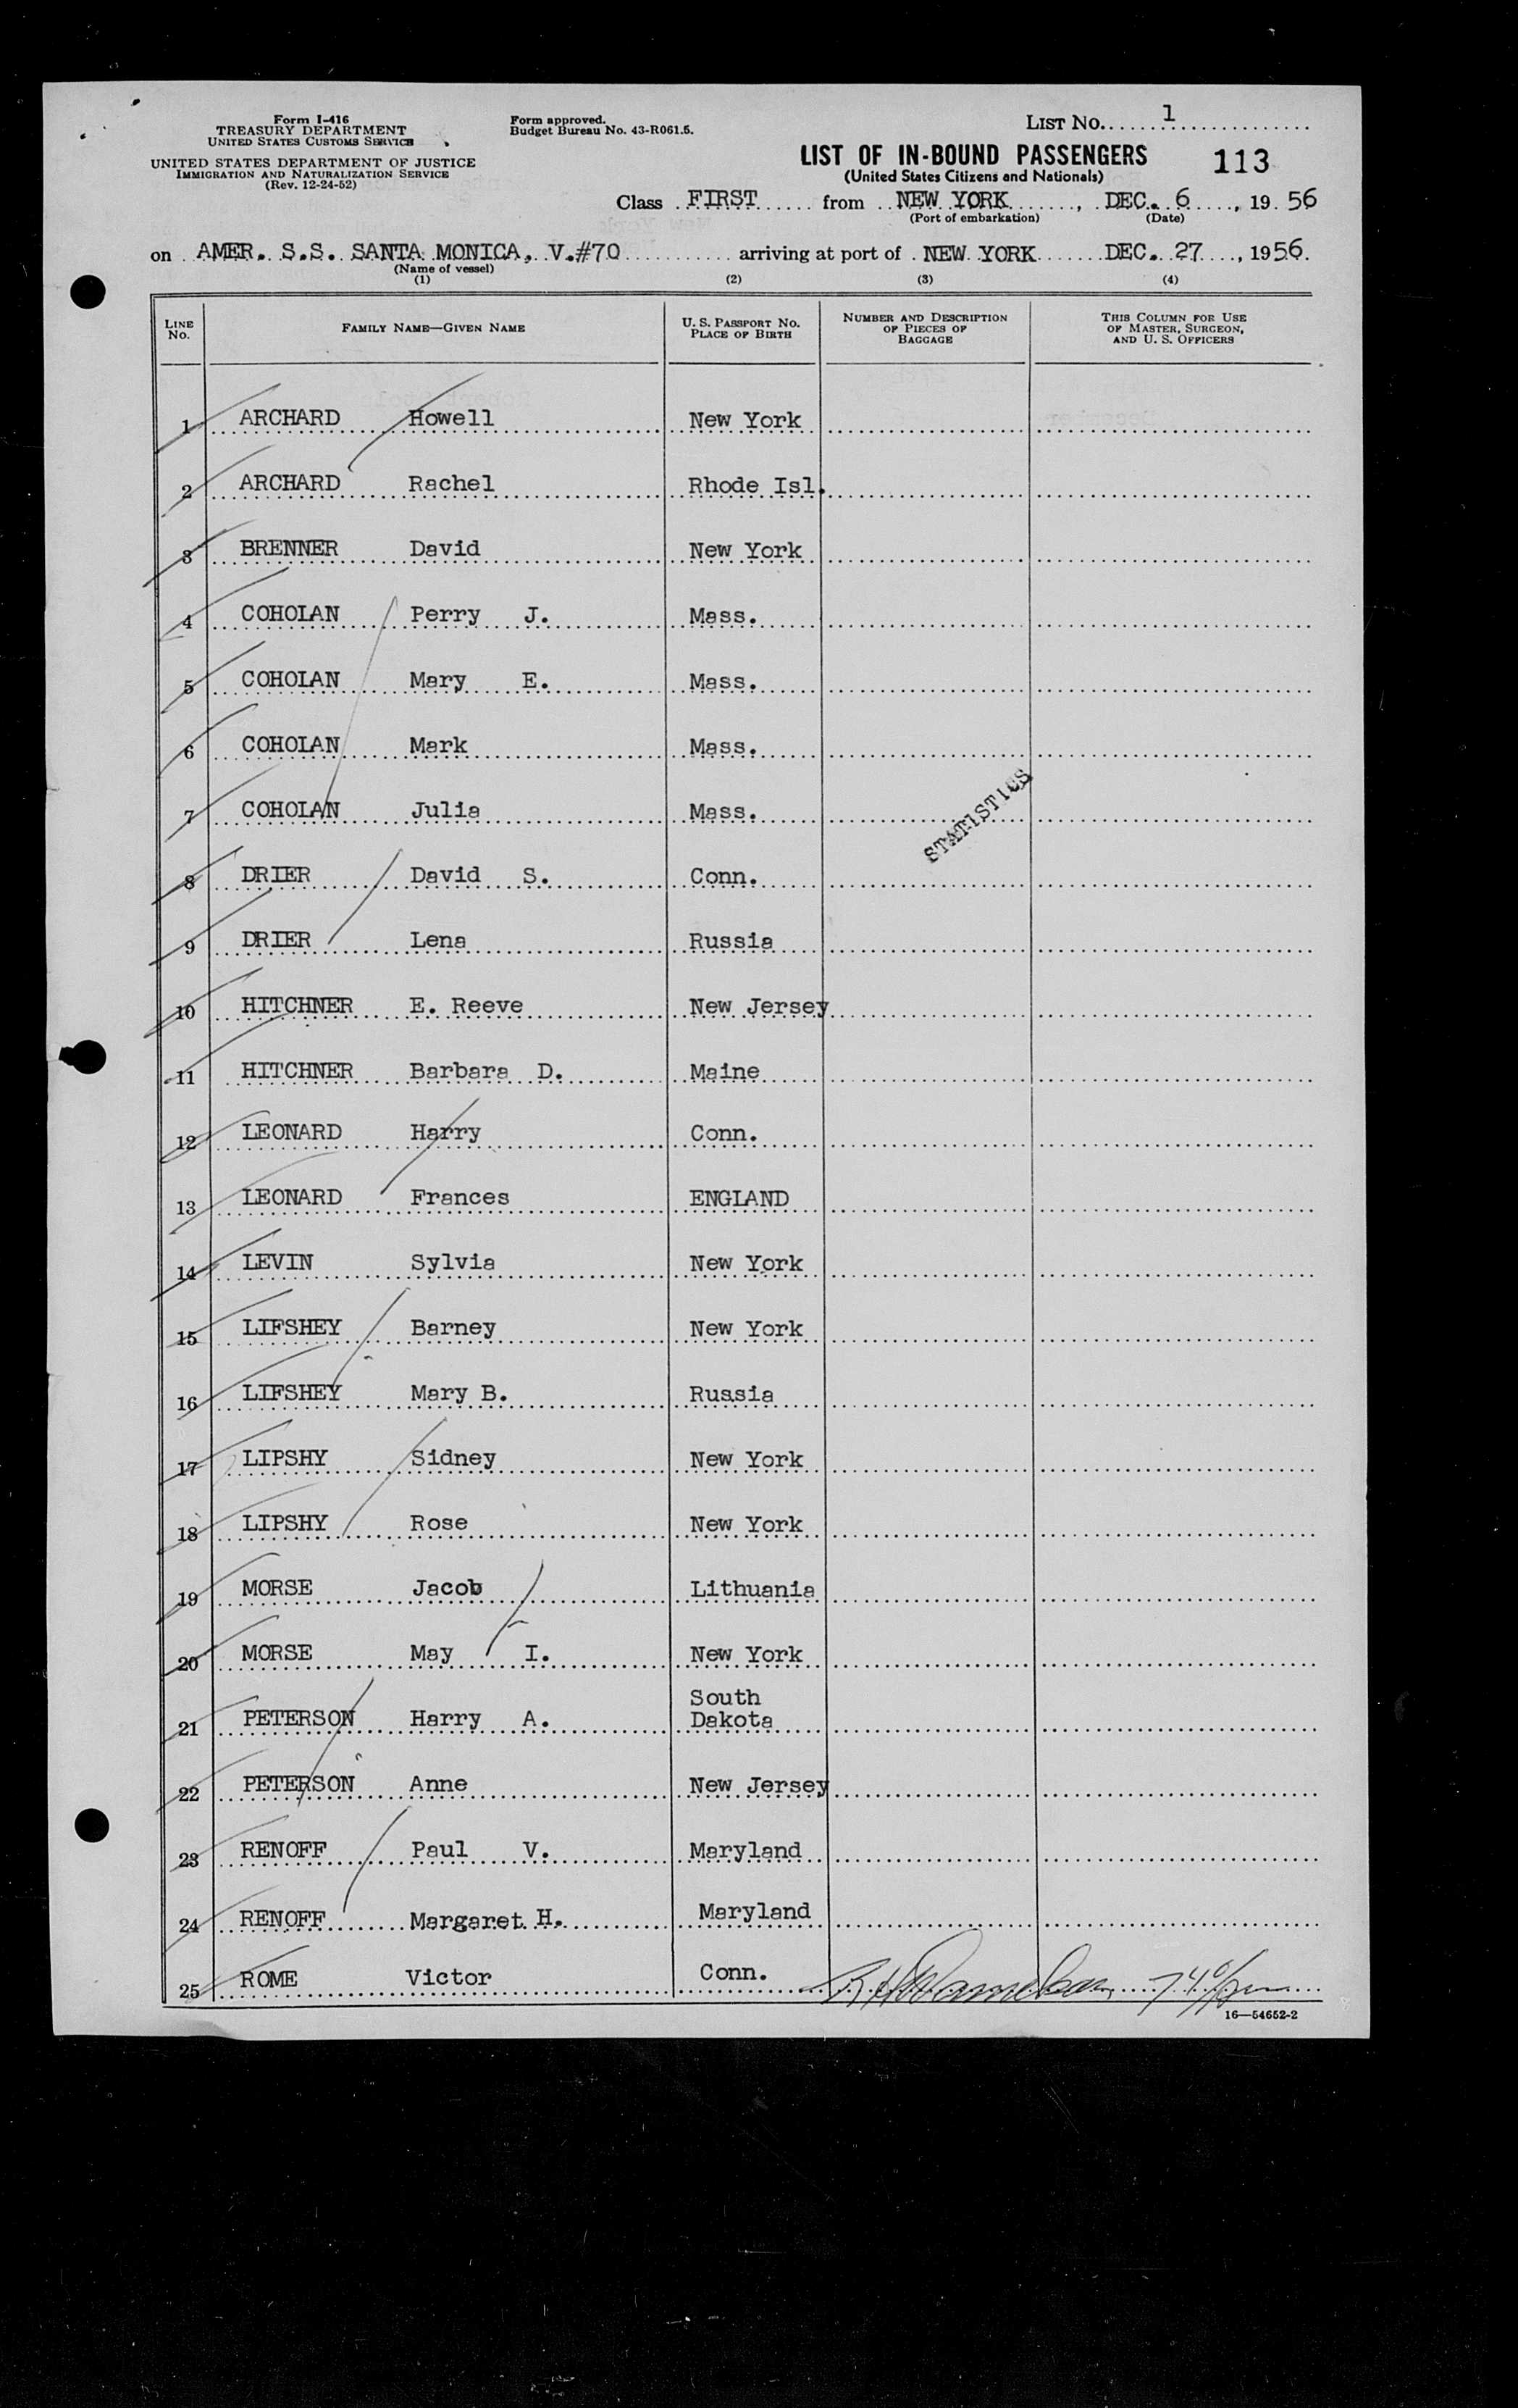 Form I-416
TREASURY DEPARTMENT
UNITED STATES CUSTOMS SERVICE
UNITED STATES DEPARTMENT OF JUSTICE
IMMIGRATION AND NATURALIZATION SERVICE
(Rev. 12-24-52)
Form approved.
Budget Bureau No. 43-R061.5.
LIST NO. 1
LIST OF IN-BOUND PASSENGERS 113
(United States Citizens and Nationals)
Class FIRST from NEW YORK, DEC. 6, 1956
(Port of embarkation) (Date)
on AMER. S.S. SANTA MONICA, V.#70 arriving at port of NEW YORK DEC. 27, 1956.
(Name of vessel)
(1) (2) (3) (4)
LINE NO. FAMILY NAME—GIVEN NAME U. S. PASSPORT NO. PLACE OF BIRTH NUMBER AND DESCRIPTION OF PIECES OF BAGGAGE THIS COLUMN FOR USE OF MASTER, SURGEON, AND U. S. OFFICERS
1 ARCHARD Howell New York
2 ARCHARD Rachel Rhode Isl.
3 BRENNER David New York
4 COHOLAN Perry J. Mass.
5 COHOLAN Mary E. Mass.
6 COHOLAN Mark Mass.
7 COHOLAN Julia Mass.
STATISTICS
8 DRIER David S. Conn.
9 DRIER Lena Russia
10 HITCHNER E. Reeve New Jersey
11 HITCHNER Barbara D. Maine
12 LEONARD Harry Conn.
13 LEONARD Frances ENGLAND
14 LEVIN Sylvia New York
15 LIFSHEY Barney New York
16 LIFSHEY Mary B. Russia
17 LIPSHY Sidney New York
18 LIPSHY Rose New York
19 MORSE Jacob Lithuania
20 MORSE May I. New York
21 PETERSON Harry A. South Dakota
22 PETERSON Anne New Jersey
23 RENOFF Paul V. Maryland
24 RENOFF Margaret H. Maryland
25 ROME Victor Conn.
16—54652-2